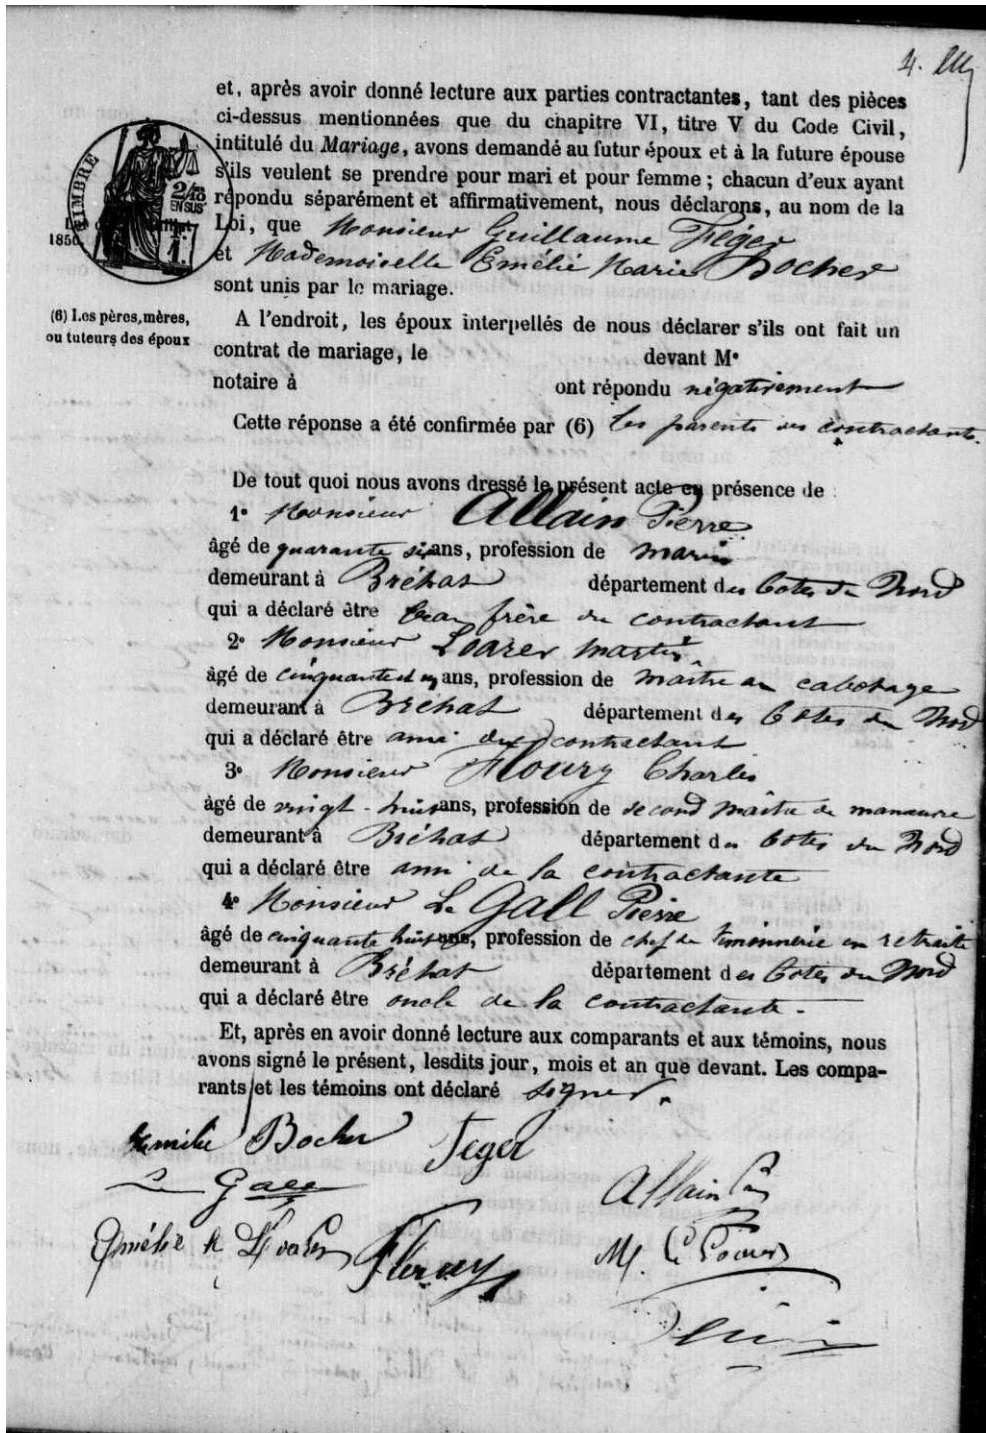 4.
et, après avoir donné lecture aux parties contractantes, tant des pièces
ci-dessus mentionnées que du chapitre VI, titre V du Code Civil,
intitulé du Mariage, avons demandé au futur époux et à la future épouse
s'ils veulent se prendre pour mari et pour femme ; chacun d'eux ayant
répondu séparément et affirmativement, nous déclarons, au nom de la
Loi, que Monsieur Guillaume Féger
et Mademoiselle Emélie Marie Bocher
sont unis par le mariage.
TIMBRE
2/10
EN SUS
1850
(6) Les pères, mères,
ou tuteurs des époux
A l'endroit, les époux interpellés de nous déclarer s'ils ont fait un
contrat de mariage, le devant Me
notaire à ont répondu négativement
Cette réponse a été confirmée par (6) les parents des contractants.
De tout quoi nous avons dressé le présent acte en présence de :
1° Monsieur Allain Pierre
âgé de quarante six ans, profession de marin
demeurant à Bréhat département des Côtes du Nord
qui a déclaré être beau frère du contractant
2° Monsieur Loarer Martin
âgé de cinquante et un ans, profession de maître au cabotage
demeurant à Bréhat département des Côtes du Nord
qui a déclaré être ami du contractant
3° Monsieur Floury Charles
âgé de vingt-huit ans, profession de second maître de manœuvre
demeurant à Bréhat département des Côtes du Nord
qui a déclaré être ami de la contractante
4° Monsieur Le Gall Pierre
âgé de cinquante huit ans, profession de chef de timonnerie en retraite
demeurant à Bréhat département des Côtes du Nord
qui a déclaré être oncle de la contractante.
Et, après en avoir donné lecture aux comparants et aux témoins, nous
avons signé le présent, lesdits jour, mois et an que devant. Les compa-
rants et les témoins ont déclaré signer.
Emélie Bocher Feger
Le Gall Allain
Floury M.